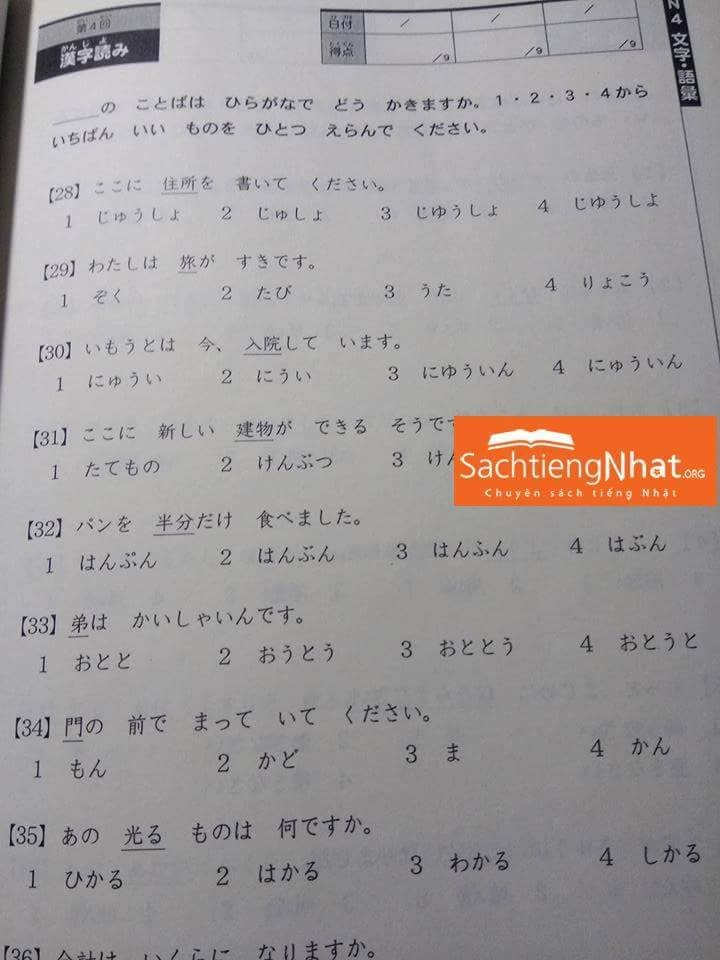 第4回
かんじよ
漢字読み
ひづけ
日付
とくてん
得点
/
/
/
/9
/9
/9
N4 文字・語彙
＿＿＿の ことばは ひらがなで どう かきますか。1・2・3・4から
いちばん いい ものを ひとつ えらんで ください。
【28】ここに 住所を 書いて ください。
1 じゅうしょ 2 じゅしょ 3 じゆうしょ 4 じゆうしよ
【29】わたしは 旅が すきです。
1 ぞく 2 たび 3 うた 4 りょこう
【30】いもうとは 今、入院して います。
1 にゅうい 2 にうい 3 にゆういん 4 にゅういん
【31】ここに 新しい 建物が できる そうです
1 たてもの 2 けんぶつ 3 けん
SachtiengNhat.ORG
Chuyên sách tiếng Nhật
【32】パンを 半分だけ 食べました。
1 はんぷん 2 はんぶん 3 はんふん 4 はぶん
【33】弟は かいしゃいんです。
1 おとと 2 おうとう 3 おととう 4 おとうと
【34】門の 前で まって いて ください。
1 もん 2 かど 3 ま 4 かん
【35】あの 光る ものは 何ですか。
1 ひかる 2 はかる 3 わかる 4 しかる
【36】会計は いくらに なりますか。